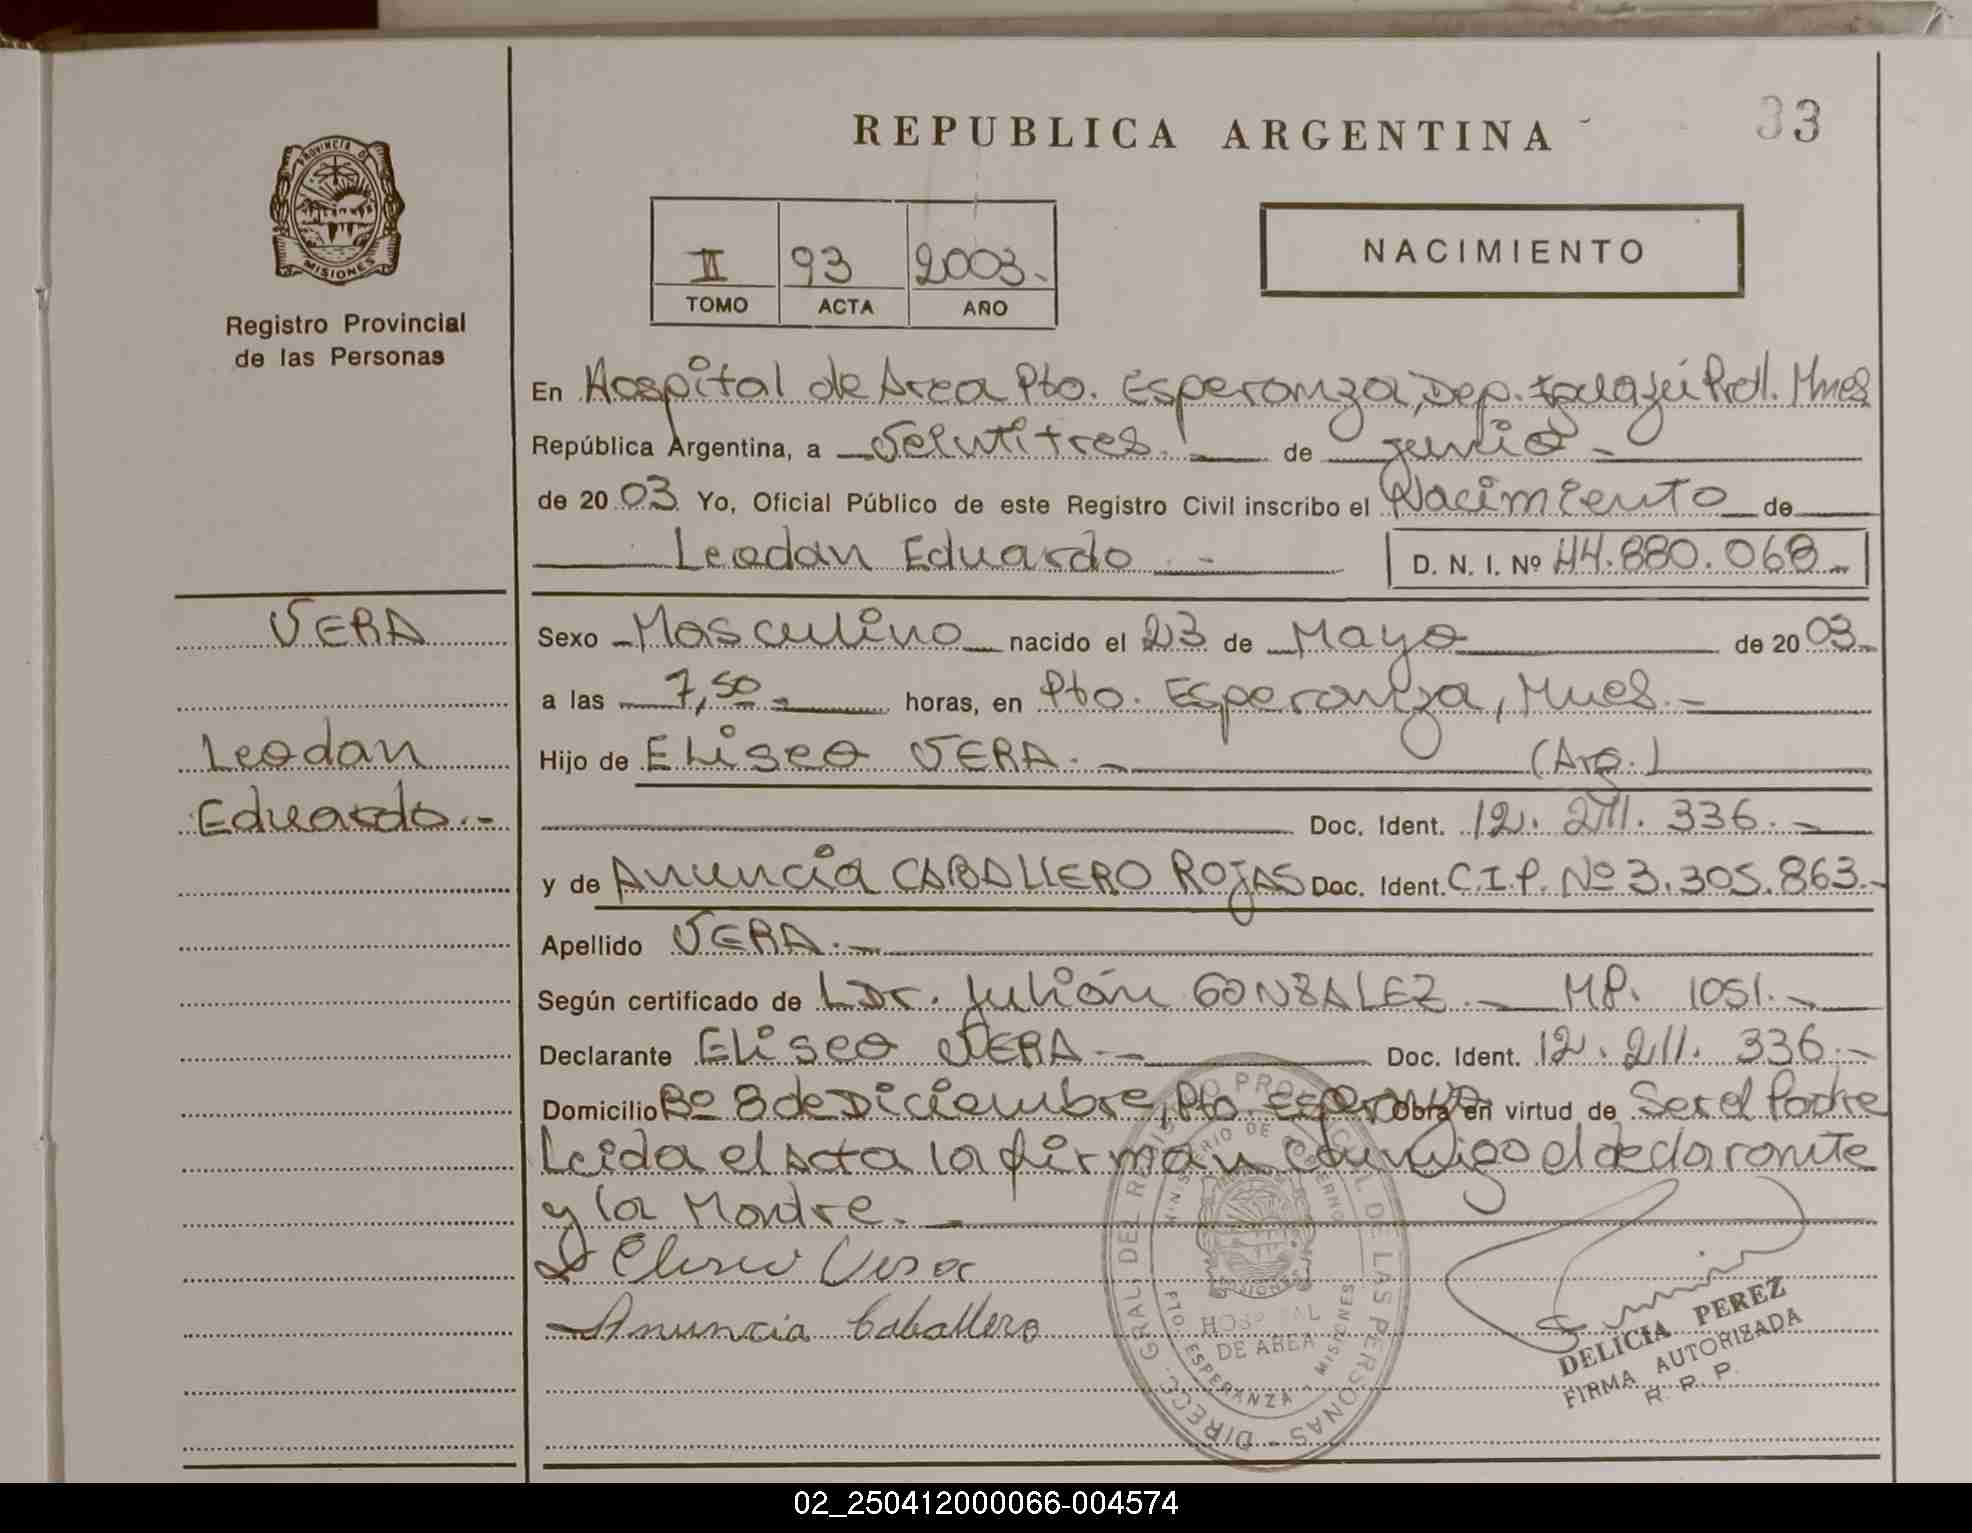 REPUBLICA ARGENTINA
33
PROVINCIA DE
MISIONES
Registro Provincial
de las Personas
II 93 2003.-
TOMO ACTA AÑO
NACIMIENTO
En Hospital de Area Pto. Esperanza, Dep. Iguazú Prov. Mnes
República Argentina, a Veintitres.- de junio -
de 2003. Yo, Oficial Público de este Registro Civil inscribo el Nacimiento de
Leodan Eduardo .- D. N. I. Nº 44.880.068.-
VERA
Leodan
Eduardo.-
Sexo Masculino nacido el 23 de Mayo de 2003.-
a las 7,50.- horas, en Pto. Esperanza, Mnes.-
Hijo de Eliseo VERA.- (Arg.)
Doc. Ident. 12.211.336.-
y de Anuncia CABALLERO ROJAS Doc. Ident. C.I.P. Nº 3.305.863.-
Apellido VERA.-
Según certificado de Dr. Julián GONZALEZ.- MP. 1051.-
Declarante Eliseo VERA.- Doc. Ident. 12.211.336.-
Domicilio Bº 8 de Diciembre, Pto. Esperanza Obra en virtud de Ser el Padre
Leida el Acta la firman conmigo el declarante
y la Madre.-
Eliseo Vera
Anuncia Caballero
DIRECC. GRAL. DEL REGISTRO PROVINCIAL DE LAS PERSONAS -
MINISTERIO DE GOBIERNO
MISIONES
HOSPITAL
DE AREA
PTO. ESPERANZA - MISIONES
DELICIA PEREZ
FIRMA AUTORIZADA
R. R. P.
02_250412000066-004574